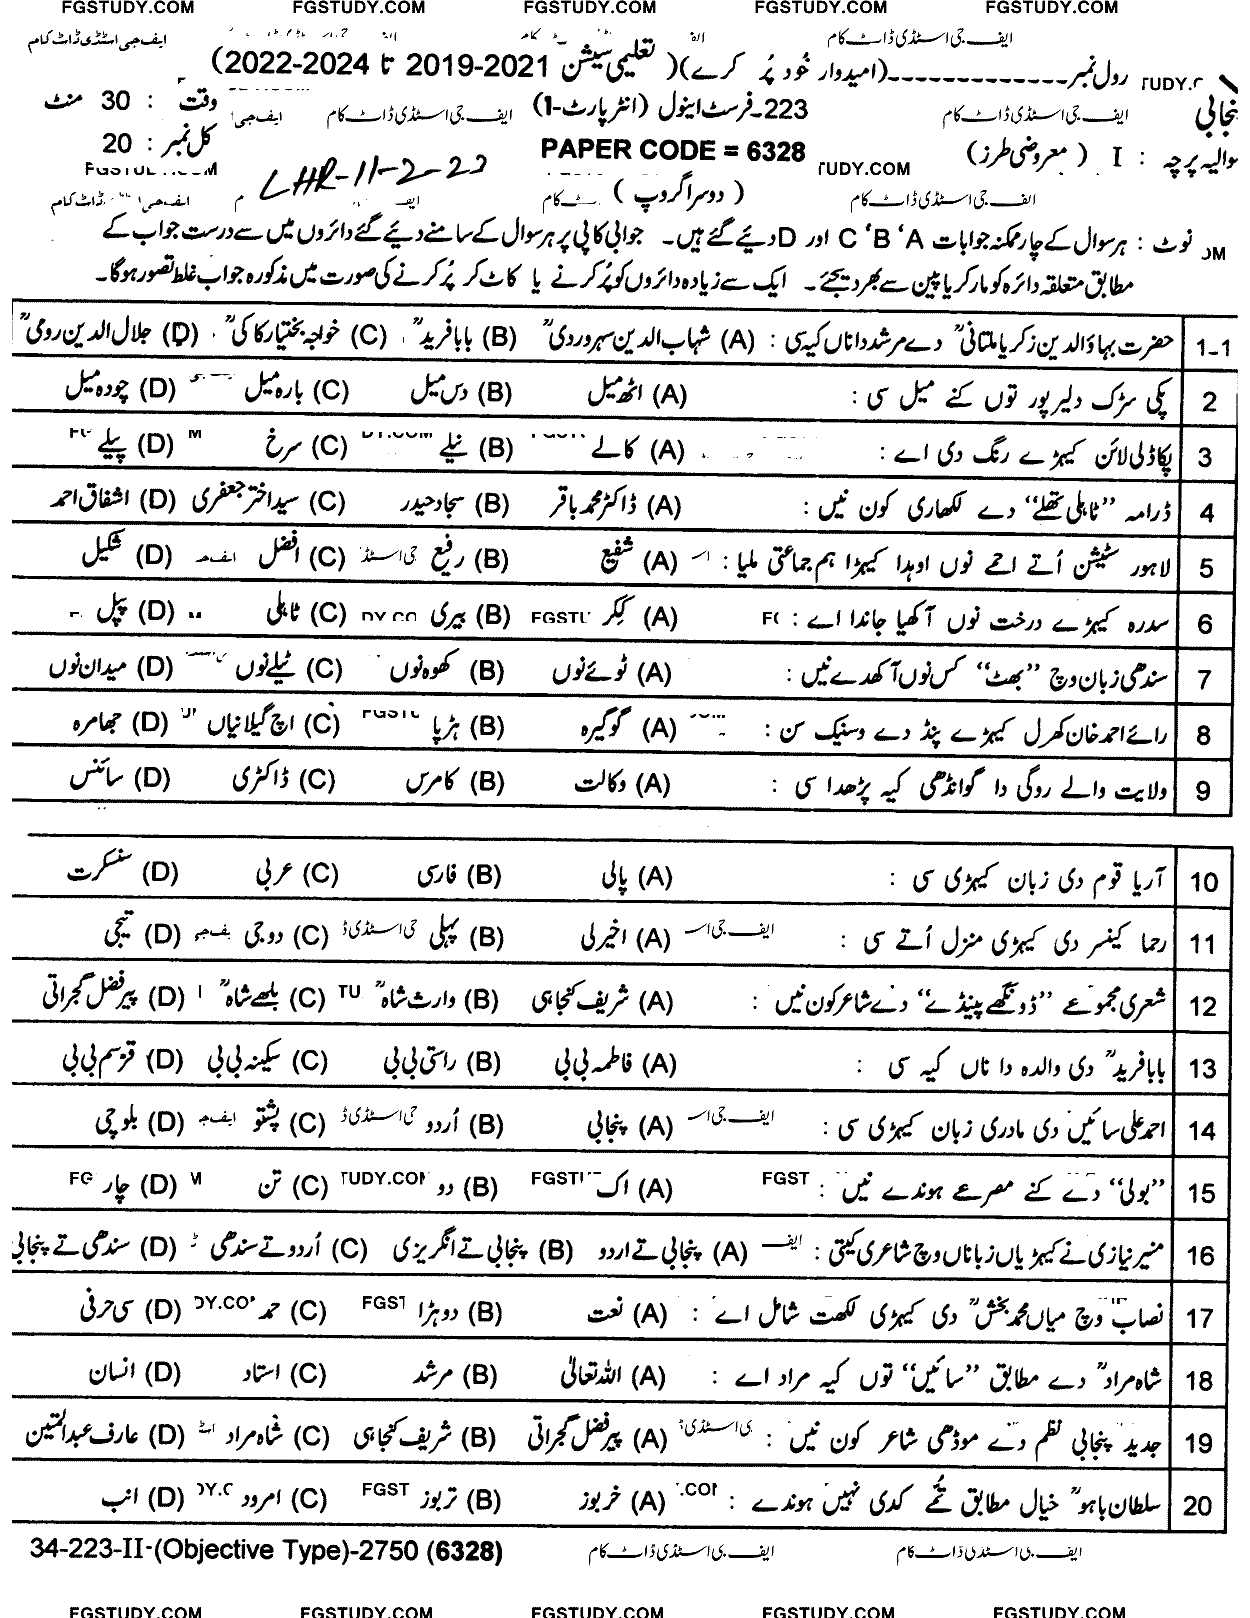 FGSTUDY.COM FGSTUDY.COM FGSTUDY.COM FGSTUDY.COM FGSTUDY.COM
ایف جی اسٹڈی ڈاٹ کام ایف جی اسٹڈی ڈاٹ کام
رول نمبر ------------- (امیدوار خود پُر کرے) (تعلیمی سیشن 2021-2019 تا 2024-2022)
223۔فرسٹ اینول (انٹر پارٹ-1) وقت : 30 منٹ
ایف جی اسٹڈی ڈاٹ کام ایف جی اسٹڈی ڈاٹ کام
سوالیہ پرچہ : I (معروضی طرز) PAPER CODE = 6328 کل نمبر : 20
LHR-11-2-23
(دوسرا گروپ)
ایف جی اسٹڈی ڈاٹ کام
نوٹ : ہر سوال کے چار ممکنہ جوابات A، B، C اور D دیئے گئے ہیں۔ جوابی کاپی پر ہر سوال کے سامنے دیئے گئے دائروں میں سے درست جواب کے
مطابق متعلقہ دائرہ کو مارکر یا پین سے بھر دیجئے۔ ایک سے زیادہ دائروں کو پُر کرنے یا کاٹ کر پُر کرنے کی صورت میں مذکورہ جواب غلط تصور ہوگا۔
1-1 حضرت بہاؤالدین زکریا ملتانیؒ دے مرشد دا ناں کیہ سی : (A) شہاب الدین سہروردیؒ (B) بابا فریدؒ (C) خواجہ بختیار کاکیؒ (D) جلال الدین رومیؒ
2 پکی سڑک دلیر پور توں کنے میل سی : (A) اٹھ میل (B) دس میل (C) بارہ میل (D) چودہ میل
3 پکاڈلی لائن کیہڑے رنگ دی اے : (A) کالے (B) نیلے (C) سرخ (D) پیلے
4 ڈرامہ "ٹاہلی تھلے" دے لکھاری کون نیں : (A) ڈاکٹر محمد باقر (B) سجاد حیدر (C) سید اختر جعفری (D) اشفاق احمد
5 لاہور سٹیشن اُتے احمے نوں اوہدا کیہڑا ہم جماعتی ملیا : (A) شفیع (B) رفیع (C) افضل (D) شکیل
6 سدرہ کیہڑے درخت نوں آکھیا جاندا اے : (A) ککر (B) بیری (C) ٹاہلی (D) پپل
7 سندھی زبان وچ "بھٹ" کس نوں آکھدے نیں : (A) ٹوئے نوں (B) کھوہ نوں (C) ٹیلے نوں (D) میدان نوں
8 رائے احمد خان کھرل کیہڑے پنڈ دے وسنیک سن : (A) گوگیرہ (B) ہڑپا (C) اچ گیلانیاں (D) جھامرہ
9 ولایت والے روگی دا گوانڈھی کیہ پڑھدا سی : (A) وکالت (B) کامرس (C) ڈاکٹری (D) سائنس
10 آریا قوم دی زبان کیہڑی سی : (A) پالی (B) فارسی (C) عربی (D) سنسکرت
11 رحما کینسر دی کیہڑی منزل اُتے سی : (A) اخیرلی (B) پہلی (C) دوجی (D) تیجی
12 شعری مجموعے "ڈونگھے پینڈے" دے شاعر کون نیں : (A) شریف کنجاہی (B) وارث شاہؒ (C) بلھے شاہؒ (D) پیر فضل گجراتی
13 بابا فریدؒ دی والدہ دا ناں کیہ سی : (A) فاطمہ بی بی (B) راستی بی بی (C) سکینہ بی بی (D) قرسم بی بی
14 احمد علی سائیں دی مادری زبان کیہڑی سی : (A) پنجابی (B) اُردو (C) پشتو (D) بلوچی
15 "بولی" دے کنے مصرعے ہوندے نیں : (A) اک (B) دو (C) تن (D) چار
16 منیر نیازی نے کیہڑیاں زباناں وچ شاعری کیتی : (A) پنجابی تے اردو (B) پنجابی تے انگریزی (C) اُردو تے سندھی (D) سندھی تے پنجابی
17 نصاب وچ میاں محمد بخشؒ دی کیہڑی لکھت شامل اے : (A) نعت (B) دوہڑا (C) حمد (D) سی حرفی
18 شاہ مرادؒ دے مطابق "سائیں" توں کیہ مراد اے : (A) اللہ تعالیٰ (B) مرشد (C) استاد (D) انسان
19 جدید پنجابی نظم دے موڈھی شاعر کون نیں : (A) پیر فضل گجراتی (B) شریف کنجاہی (C) شاہ مراد (D) عارف عبدالمتین
20 سلطان باہوؒ خیال مطابق تُمے کدی نہیں ہوندے : (A) خربوز (B) تربوز (C) امرود (D) انب
34-223-II-(Objective Type)-2750 (6328) ایف جی اسٹڈی ڈاٹ کام ایف جی اسٹڈی ڈاٹ کام
FGSTUDY.COM FGSTUDY.COM FGSTUDY.COM FGSTUDY.COM FGSTUDY.COM